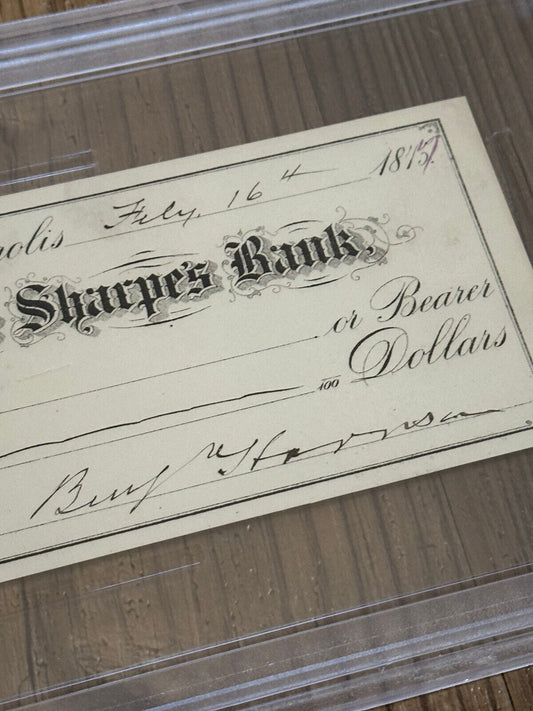 olis Feby. 16th 187
Sharpe's Bank,
or Bearer
100 Dollars
Benj n Harrison